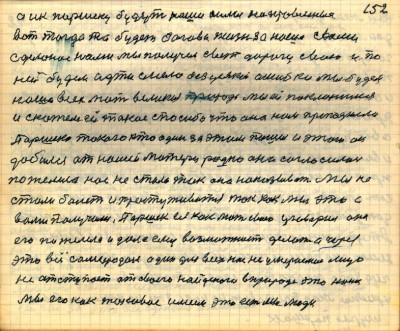 152
а их паршеку будут наши мили на здоровления
вот тогда то будет загова жизнь за нашо своими
сделано нами мы получим свет дорогу свою и по
ней будем идти смело без всякой ошибки мы будем
нашо всех мать великая природе мы ей поклонимся
и скажем ей такое спосибо это она нам преподнесла
Паршека такого кто один за этим пошел и этого он
добился от нашей матери родно она согласилась
пожелила нас не стала так она наказивать. Мы не
стали болеть и простуживатся так как мы это с
вами получили, Паршек ее как мать свою уговорил она
его пожелела и дала ему возможност делать а через
это всё самородок один для всех нас не умераемо лицо
не отступает от своего найденого в природе это наши
мы его как таковое имеем это есть мы люди